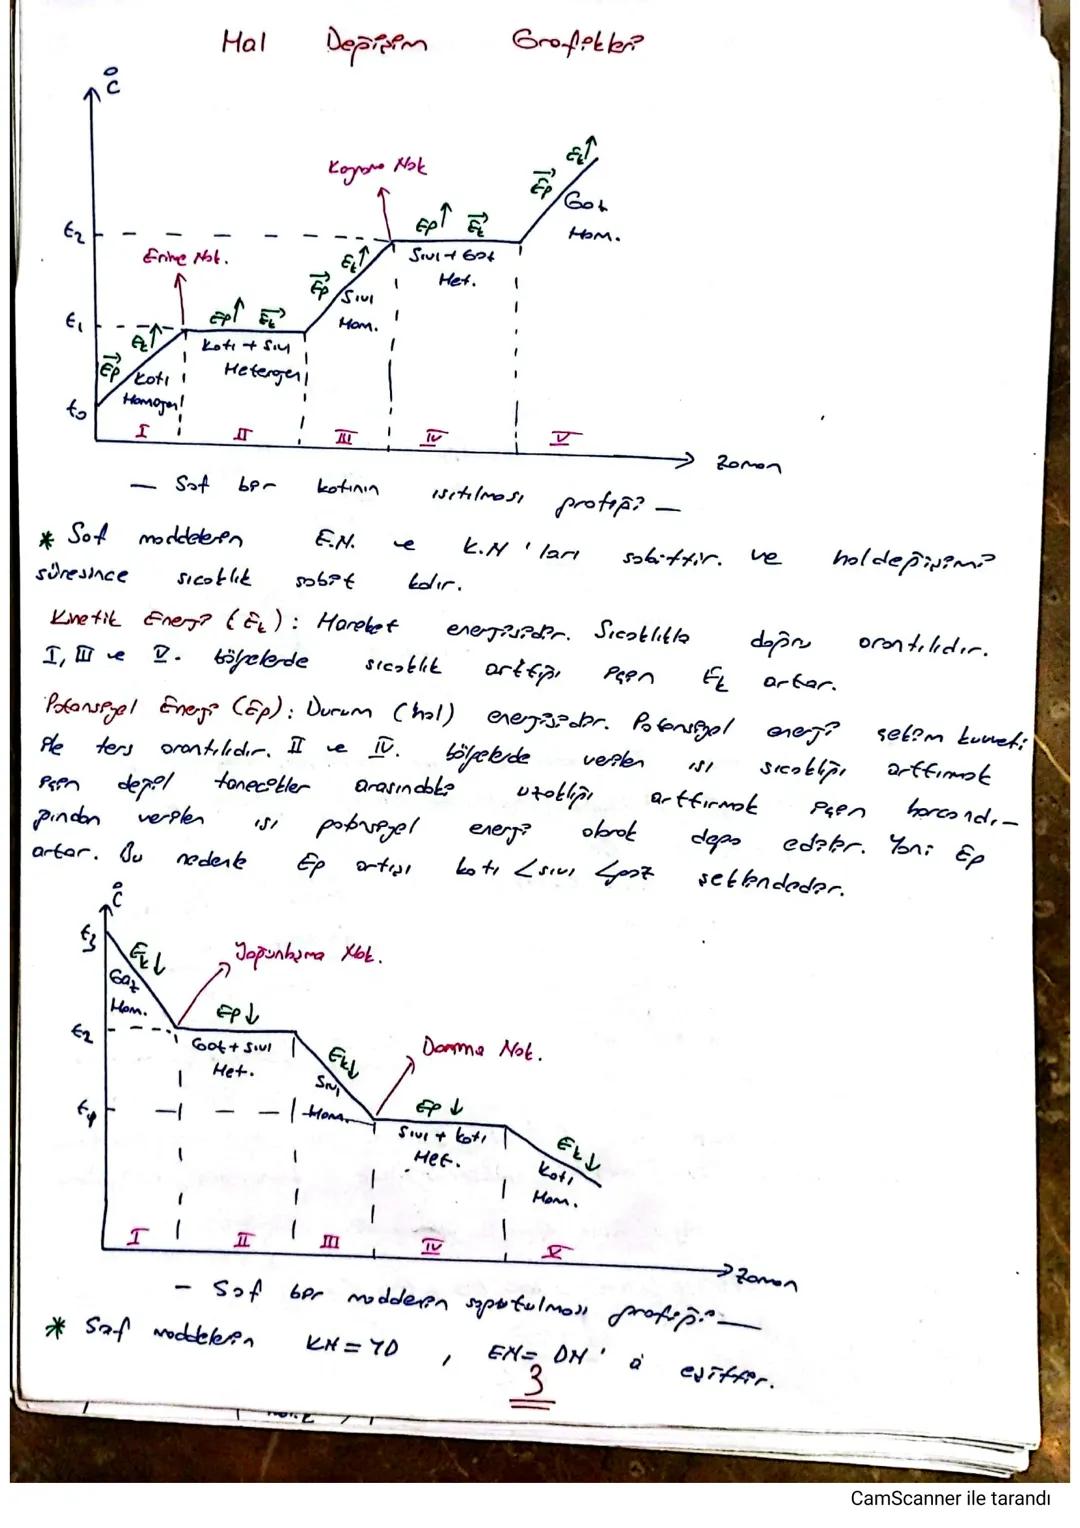 Hal Değişim Grafikleri
°C
Ek↑
Kaynama Nok
Ep→
Gaz
Ep↑ Ek→
t2
Hom.
Erime Nok.
Ek↑
Sıvı + Gaz
Het.
Ep→
Sıvı
Ep↑ Ek→
Hom.
t1
Ek↑
Katı + Sıvı
Ep→
Heterojen
Katı
Homojen
t0
I II III IV V
Zaman
— Saf bir katının ısıtılması grafiği —
* Saf maddelerin E.N. ve K.N 'ları sabittir. ve haldeğişimi
süresince sıcaklık sabit kalır.
Kinetik Enerji (Ek): Hareket enerjisidir. Sıcaklıkla doğru orantılıdır.
I, III ve V. bölgelerde sıcaklık arttığı için Ek artar.
Potansiyel Enerji (Ep): Durum (hal) enerjisidir. Potansiyel enerji çekim kuvveti
ile ters orantılıdır. II ve IV. bölgelerde verilen ısı sıcaklığı arttırmak
için değil tanecikler arasındaki uzaklığı arttırmak için harcandı-
ğından verilen ısı potansiyel enerji olarak depo edilir. Yani Ep
artar. Bu nedenle Ep artışı katı < sıvı < gaz şeklindedir.
°C
t3
Ek↓
Yoğunlaşma Nok.
Gaz
Hom.
Ep↓
t2
Gaz + Sıvı
Het.
Ek↓
Donma Nok.
Sıvı
Hom.
Ep↓
Sıvı + Katı
Het.
Ek↓
Katı
Hom.
I II III IV V
Zaman
— Saf bir maddenin soğutulması grafiği —
* Saf maddelerin KN = YN , EN = DN ' a eşittir.
3
CamScanner ile tarandı